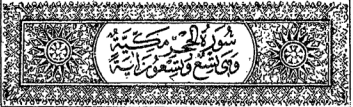 سُورَةُ الْحِجْرِ مَكِّيَّةٌ
وَهِيَ تِسْعٌ وَتِسْعُونَ آيَةً